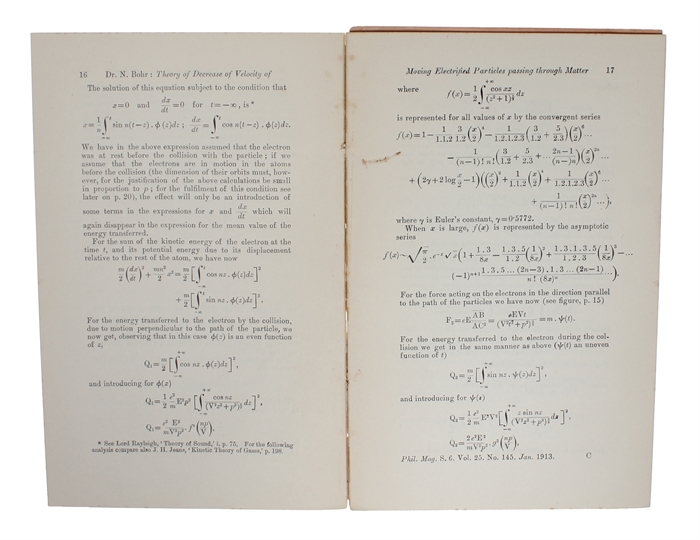 16 Dr. N. Bohr: Theory of Decrease of Velocity of
The solution of this equation subject to the condition that
x=0 and dx/dt=0 for t=−∞, is *
x = 1/n ∫_{−∞}^{t} sin n(t−z) . φ(z)dz ; dx/dt = ∫_{−∞}^{t} cos n(t−z) . φ(z)dz.
We have in the above expression assumed that the electron
was at rest before the collision with the particle; if we
assume that the electrons are in motion in the atoms
before the collision (the dimension of their orbits must, how-
ever, for the justification of the above calculations be small
in proportion to p; for the fulfilment of this condition see
later on p. 20), the effect will only be an introduction of
some terms in the expressions for x and dx/dt which will
again disappear in the expression for the mean value of the
energy transferred.
For the sum of the kinetic energy of the electron at the
time t, and its potential energy due to its displacement
relative to the rest of the atom, we have now
m/2 (dx/dt)² + mn²/2 x² = m/2 [∫_{−∞}^{t} cos nz . φ(z)dz]²
+ m/2 [∫_{−∞}^{t} sin nz . φ(z)dz]².
For the energy transferred to the electron by the collision,
due to motion perpendicular to the path of the particle, we
now get, observing that in this case φ(z) is an even function
of z,
Q₁ = m/2 [∫_{−∞}^{+∞} cos nz . φ(z)dz]²,
and introducing for φ(z)
Q₁ = 1/2 e²/m E²p² [∫_{−∞}^{+∞} cos nz/(V²z²+p²)^{3/2} dz]²,
Q₁ = e²E²/mV²p² . f²(np/V).
* See Lord Rayleigh, 'Theory of Sound,' i. p. 75. For the following
analysis compare also J. H. Jeans, 'Kinetic Theory of Gases,' p. 198.
Moving Electrified Particles passing through Matter 17
where f(x) = 1/2 ∫_{−∞}^{+∞} cos xz/(z²+1)^{3/2} dz
is represented for all values of x by the convergent series
where γ is Euler's constant, γ=0·5772.
When x is large, f(x) is represented by the asymptotic
series
For the force acting on the electrons in the direction parallel
to the path of the particles we have now (see figure, p. 15)
F₂ = eE AB/AC³ = eEVt/(V²t²+p²)^{3/2} = m . ψ(t).
For the energy transferred to the electron during the col-
lision we get in the same manner as above (ψ(t) an uneven
function of t)
Q₂ = m/2 [∫_{−∞}^{+∞} sin nz . ψ(z)dz]²,
and introducing for ψ(z)
Q₂ = 1/2 e²/m E²V² [∫_{−∞}^{+∞} z sin nz/(V²z²+p²)^{3/2} dz]²,
Q₂ = 2e²E²/mV²p² . g²(np/V),
Phil. Mag. S. 6. Vol. 25. No. 145. Jan. 1913. C